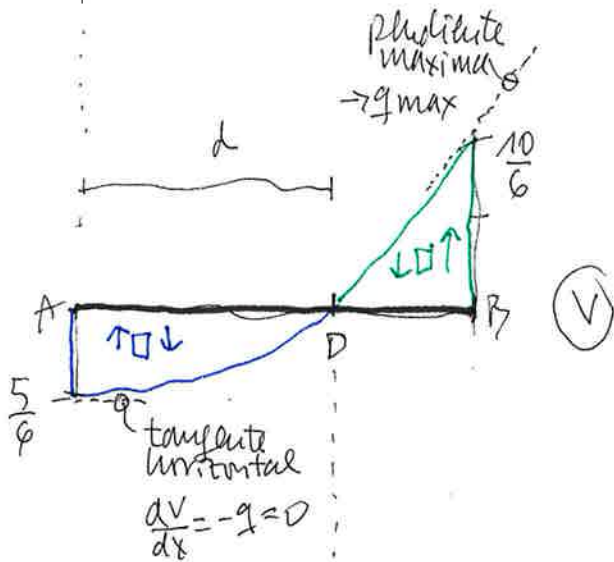 pendiente
maxima
→ q max
d
10
6
↓□↑
A
B
V
↑□↓
D
5
6
tangente
horizontal
dV
dx
= -q = 0